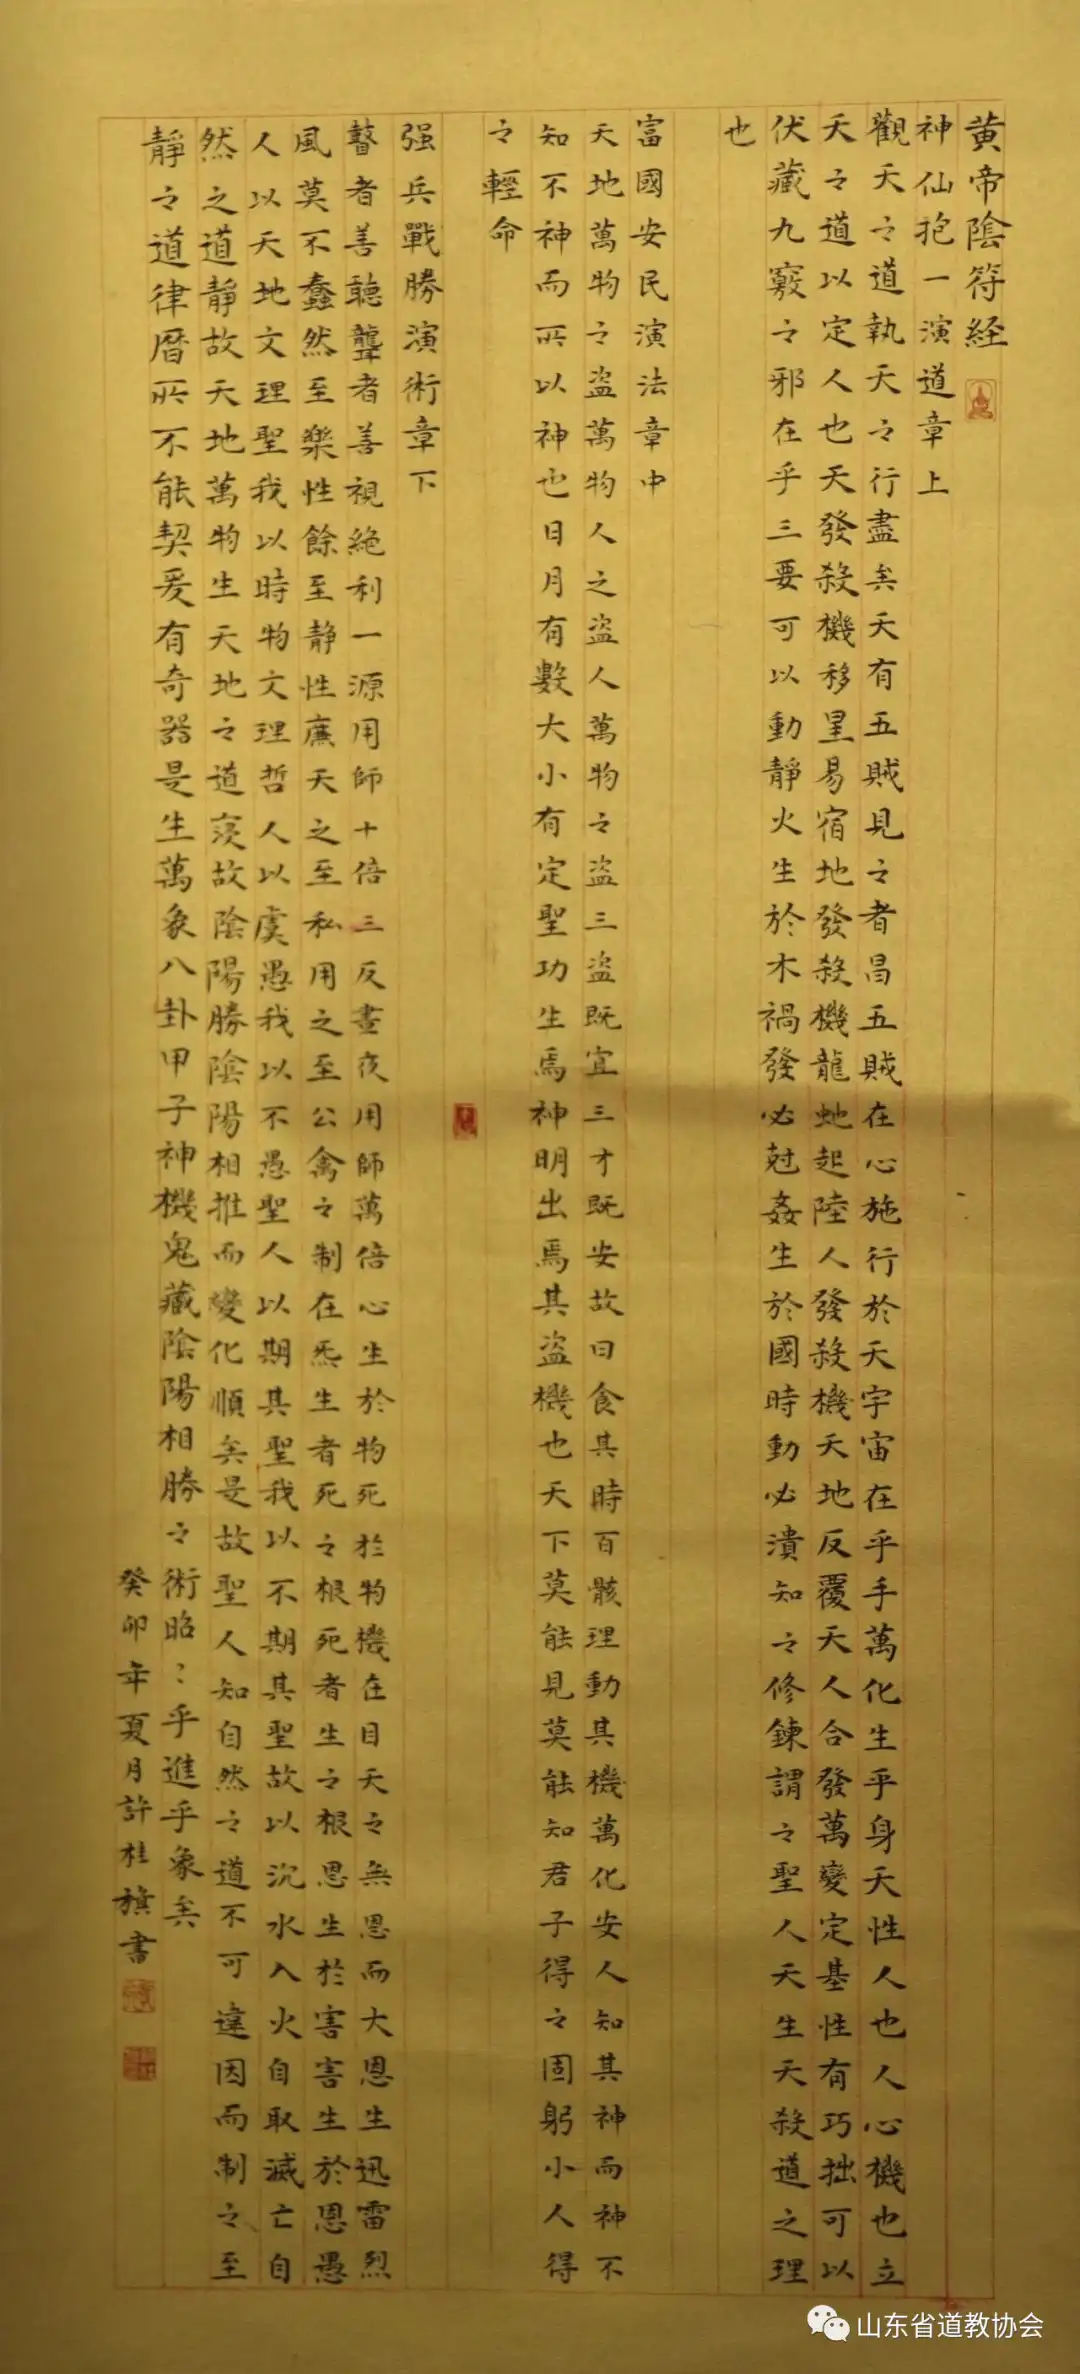 黄帝陰符经
神仙抱一演道章上
觀天之道執天之行盡矣天有五賊見之者昌五賊在心施行於天宇宙在乎手萬化生乎身天性人也人心機也立
天之道以定人也天發殺機移星易宿地發殺機龍虵起陸人發殺機天地反覆天人合發萬變定基性有巧拙可以
伏藏九竅之邪在乎三要可以動靜火生於木禍發必尅姦生於國時動必潰知之修鍊謂之聖人天生天殺道之理
也
富國安民演法章中
天地萬物之盜萬物人之盜人萬物之盜三盜既宜三才既安故曰食其時百骸理動其機萬化安人知其神而神不
知不神而所以神也日月有數大小有定聖功生焉神明出焉其盜機也天下莫能見莫能知君子得之固躬小人得
之輕命
强兵戰勝演術章下
瞽者善聽聾者善視絶利一源用師十倍三反晝夜用師萬倍心生於物死於物機在目天之無恩而大恩生迅雷烈
風莫不蠢然至樂性餘至静性廉天之至私用之至公禽之制在炁生者死之根死者生之根恩生於害害生於恩愚
人以天地文理聖我以時物文理哲人以虞愚我以不愚聖人以期其聖我以不期其聖故以沉水入火自取滅亡自
然之道靜故天地萬物生天地之道寖故陰陽勝陰陽相推而變化順矣是故聖人知自然之道不可違因而制之至
靜之道律曆所不能契爰有奇器是生萬象八卦甲子神機鬼藏陰陽相勝之術昭〻乎進乎象矣
癸卯年夏月許桂旗書
山东省道教协会